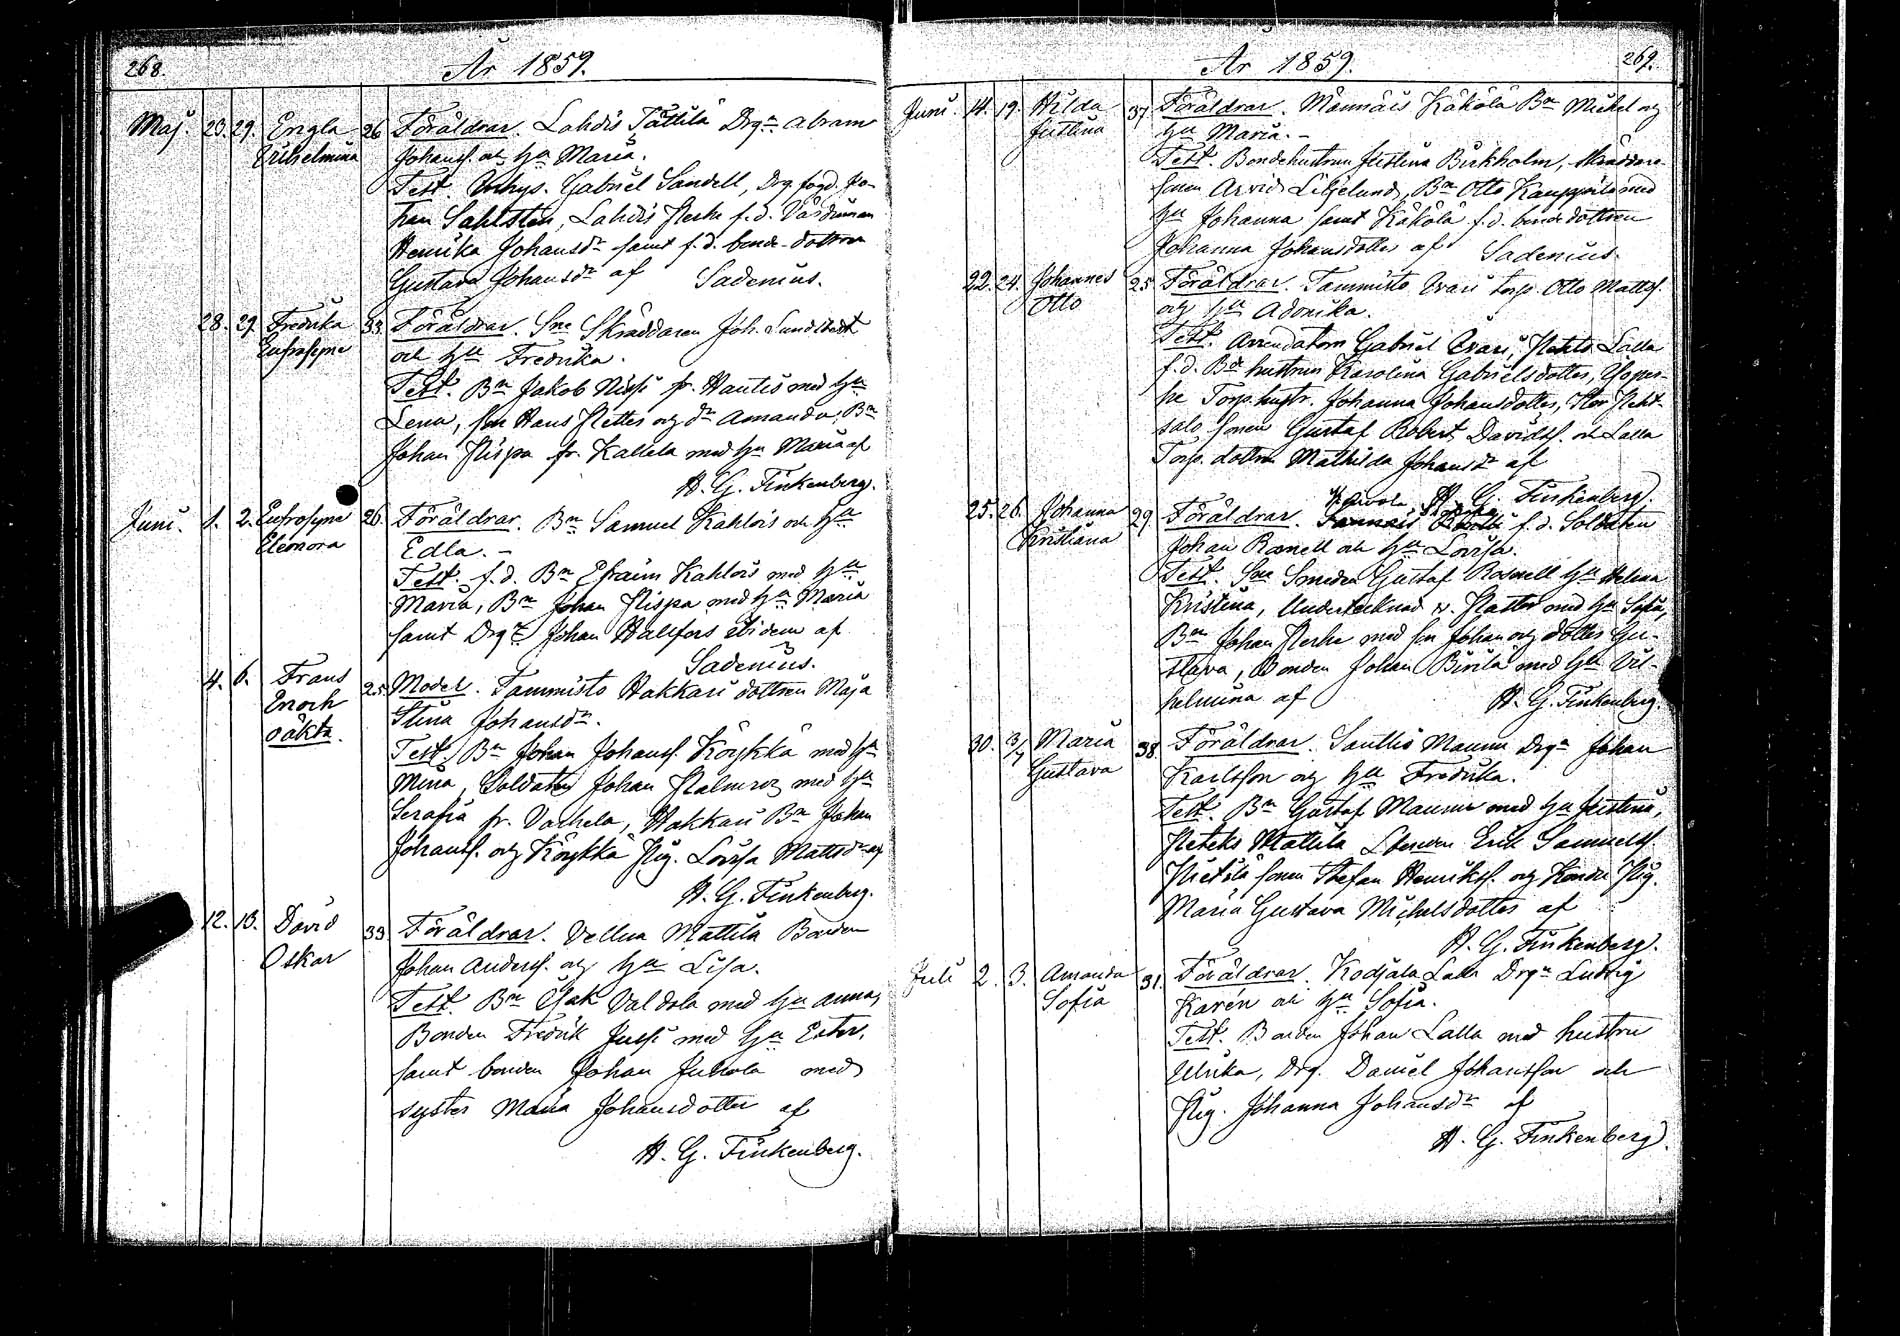 268.
År 1859.
Maj. 23. 29. Engla Vilhelmina 26 Föräldrar. Lahdis Tättilä Drgn Abram
Johanss. och hu Maria.
Test. Inhys. Gabriel Sandell, Drg. fogd. Jo-
han Sahlsten, Lahdis Heske f.d. Värdinnan
Henrika Johansdr samt f.d. bonde-dottren
Gustava Johansdr af Sadenius.
28. 29. Fredrika Eufrosyne 33 Föräldrar. Sne Skräddaren Joh. Sundstedt
och hu Fredrika.
Test. Bn Jakob Nissi fr. Hautis med hu
Lena, sn Hans Petter och dr Amanda, Bn
Johan Pispa fr. Kallela med hu Maria af
H. G. Finkenberg.
Juni. 1. 2. Eufrosyne Eleonora 26. Föräldrar. Bn Samuel Kahlois och hu
Edla. -
Test. f.d. Bn Efraim Kahlois med hu
Maria, Bn Johan Pispa med hu Maria
samt Drgn Johan Hallfors ibidem af
Sadenius.
4. 6. Frans Enoch oäkta. 25. Moder. Tammisto Hakkari dottren Maja
Stina Johansdr.
Test. Bn Johan Johanss. Köykkä med hu
Mina, Soldaten Johan Palmroz med hu
Serafia fr. Vachela, Hakkari Bn Johan
Johanss. och Köykkä Pig. Lovisa Mattsdr af
H. G. Finkenberg.
12. 13. David Oskar 33 Föräldrar. Vellua Mattila Bonden
Johan Anderss. och hu Lisa.
Test. Bn Isak Valdola med hu Anna,
Bonden Fredrik Jussi med hu Ester,
samt bonden Johan Junnola med
syster Maria Johansdotter af
H. G. Finkenberg.
269.
År 1859.
Juni. 14. 19. Hilda Justina 37 Föräldrar. Männäis Käkölä Bn Mickel och
hu Maria. -
Test. Bondehustrun Justina Birkholm, Skräddare-
sonen Arvid Liljelund, Bn Otto Kauppila med
hu Johanna samt Käkölä f.d. bonde dottren
Johanna Johansdotter af Sadenius.
22. 24. Johannes Otto 25 Föräldrar. Tammisto Uvari torp. Otto Mattss.
och hu Adonika.
Test. Arrendatorn Gabriel Uvari, Lalla
f.d. Bde hustrun Karolina Gabrielsdotter,
Torp.hustr. Johanna Johansdotter,
salo sonen Gustaf Robert Davidss. och Lalla
Torp. dottren Mathilda Johansdr af
H. G. Finkenberg.
25. 26. Johanna Kristiana 29. Föräldrar. f.d. Soldaten
Johan Rosnell och hu Lovisa.
Test. Sne Smeden Gustaf Rosnell hu Helena
Kristina, Undertecknad v. Pastor med hu Sofia,
Bn Johan Heske med sn Johan och dotter Gu-
stava, Bonden Johan Birilä med hu Vil-
helmina af H. G. Finkenberg.
30. 3/7 Maria Gustava 38. Föräldrar. Santtio Maunu Drgn Johan
Karlsson och hu Fredrika.
Test. Bn Gustaf Maunu med hu Justina,
Mattila Erik Samuelss.
sonen Stefan Henrikss. och Pig.
Maria Gustava Michelsdotter af
H. G. Finkenberg.
Juli 2. 3. Amanda Sofia 31. Föräldrar. Kodjala Lalla Drgn Ludvig
Karén och hu Sofia.
Test. Bonden Johan Lalla med hustru
Ulrika, Drg. Daniel Johansson och
Pig. Johanna Johansdr af
H. G. Finkenberg.